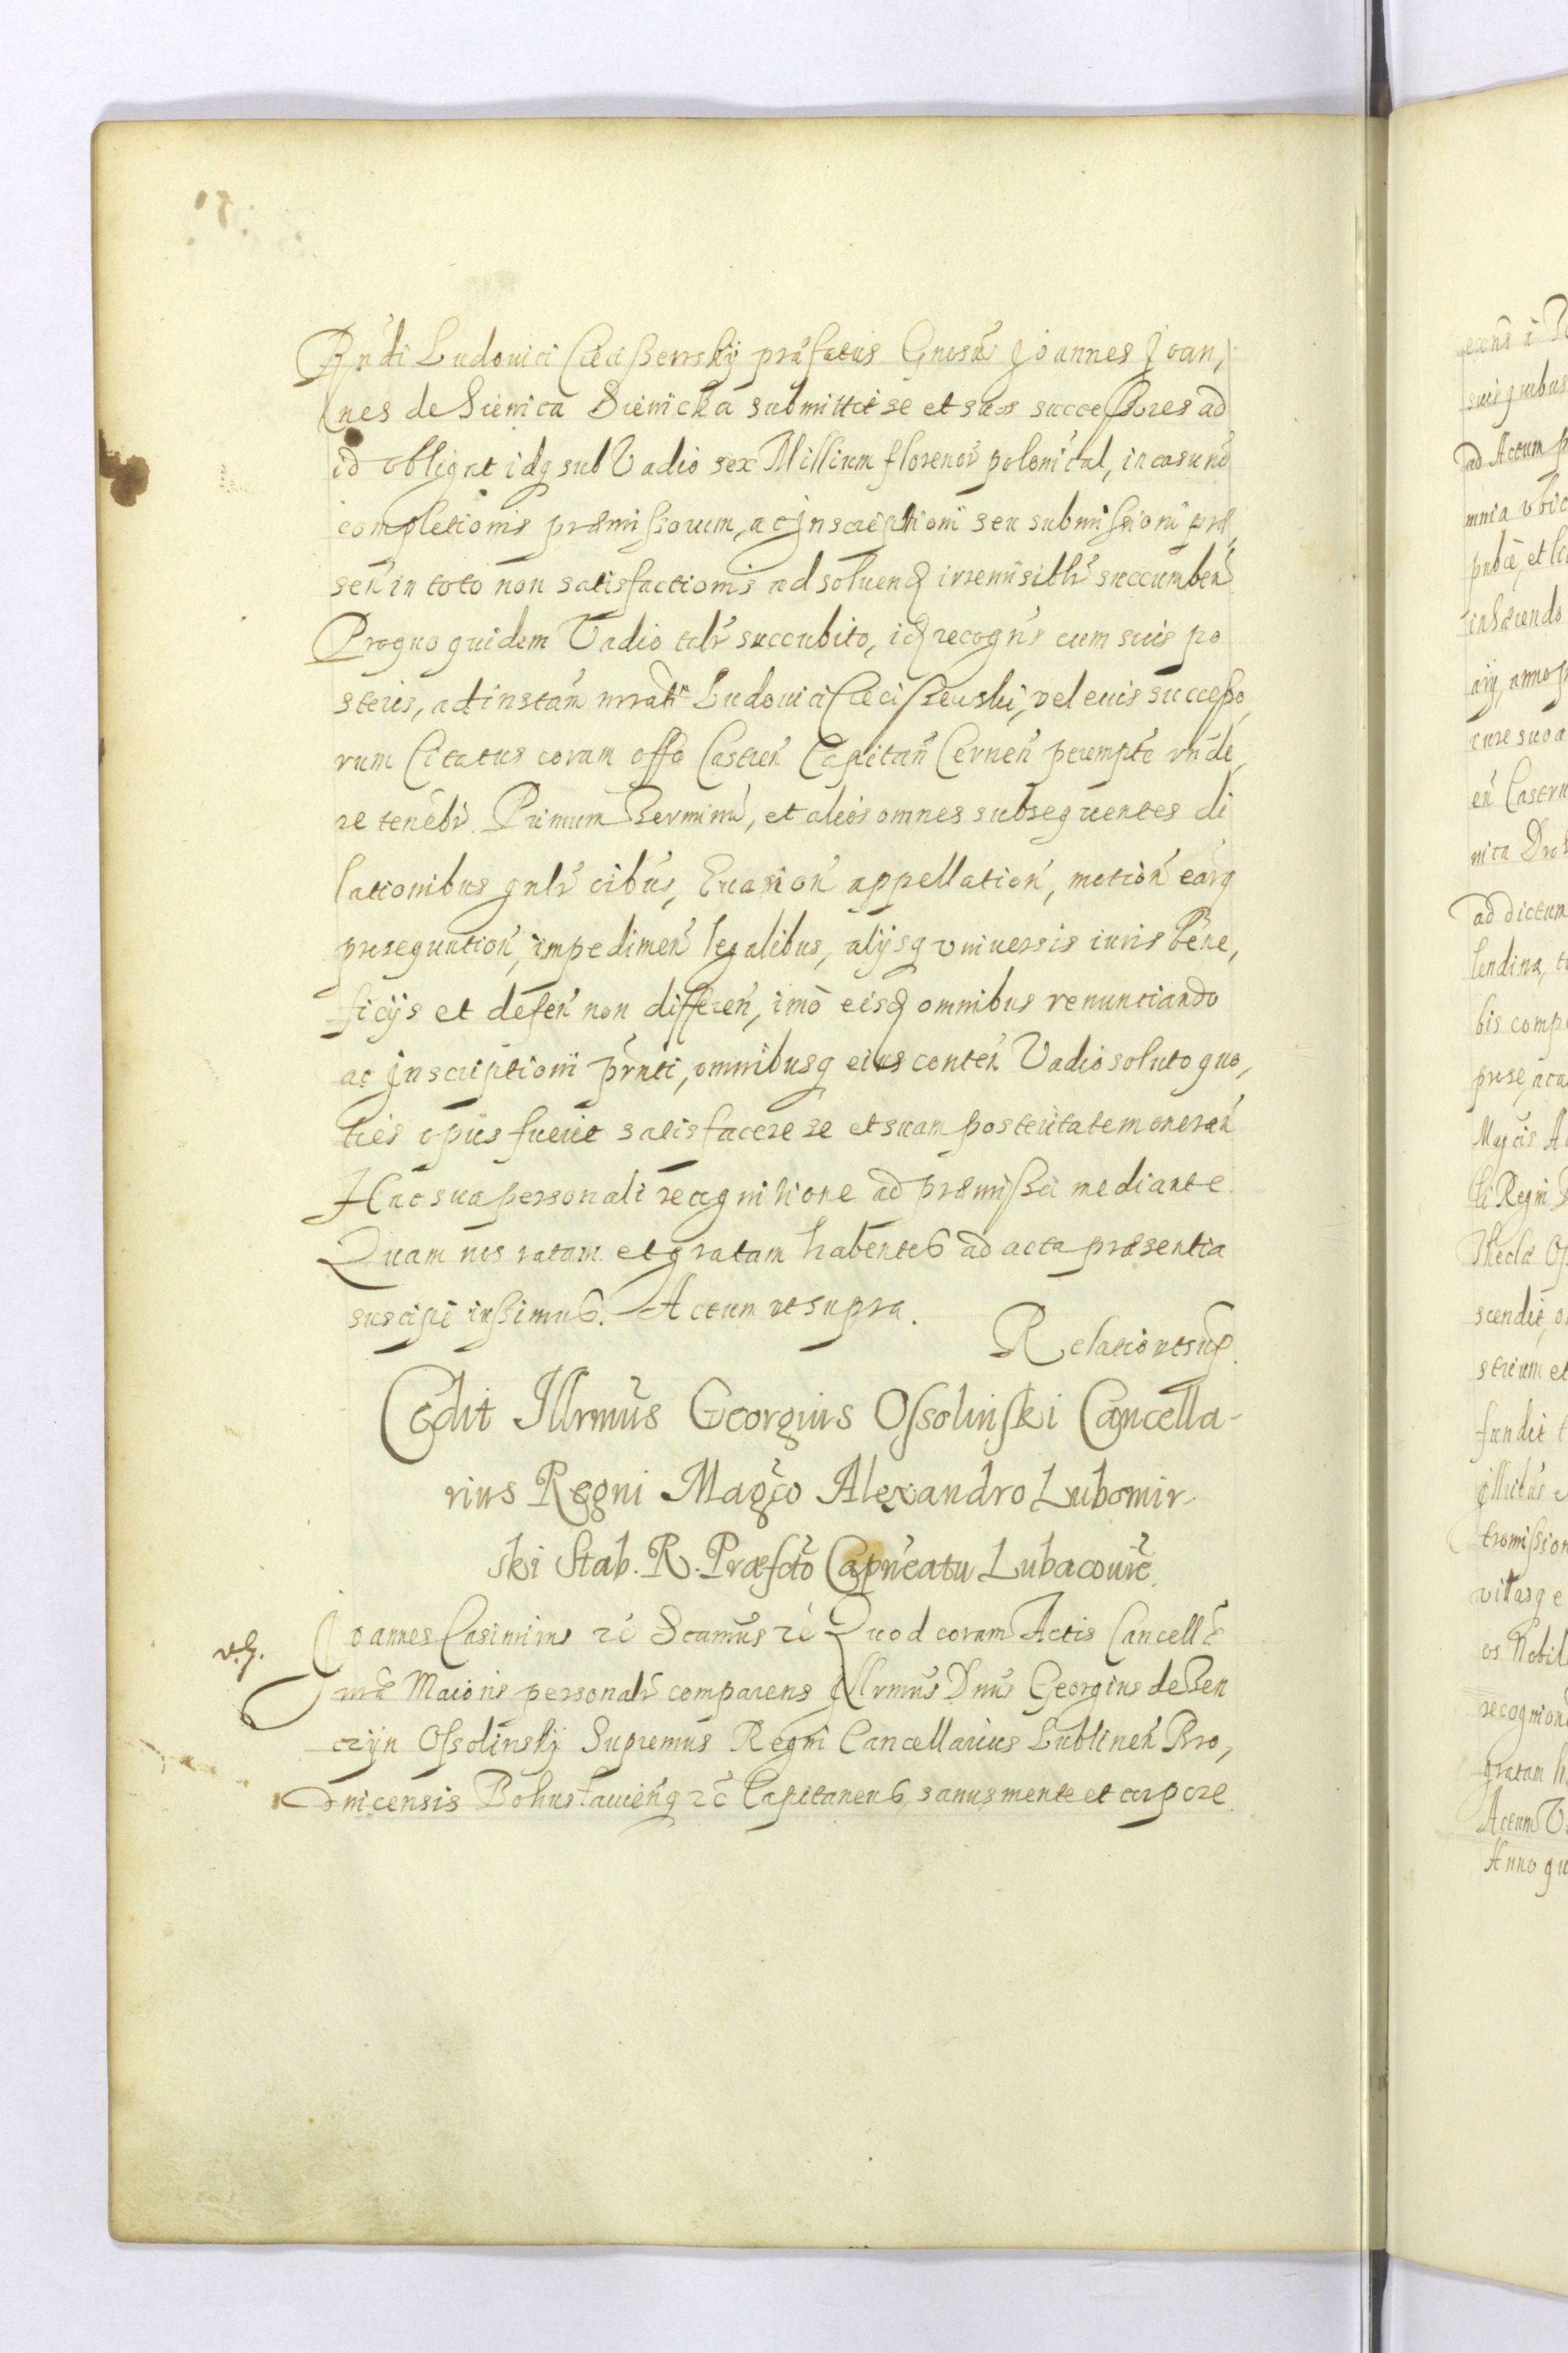 Rndi Ludouici Cieciszewskij præfatus Gnosus Joannes Joan,
nes de Sienica Sienicka submittit se et suos successores ad
id obligat idq sub Vadio sex Millium florenor polonical, in casu no
completionis præmissorum, ac Inscriptioni seu submissioni præ,
sen in toto non satisfactionis ad soluend irremisiblr succumben
Proquo quidem Vadio talr succubito, id recogns cum suis po
steris, ad instan nrrati Ludouici Cieciszewski, vel euis successo,
rum Citatus coram offo Castren Capitan Cernen peremptè rnde,
re tenebr. Primum Terminu, et alios omnes subsequentes di
lationibus gnlr cibus, Euasion appellation, motion earq
prosequution, impedimen legalibus, alijsq vniuersis iuris bene,
ficijs et defen non differen, imo eisd omnibus renuntiando
ac Inscriptioni prnti, omnibusq eius conten Vadio soluto quo,
ties opus fuerit satisfacere se et suam posteritatem oneran
Hac sua personali recognitione ad præmissa mediante.
Quam nos ratam et gratam habentes ad acta præsentia
suscipi iussimus. Actum ut supra.
Relatio ut sup.
Cedit Illrmus Georgius Ossolinski Cancella-
rius Regni Magco Alexandro Lubomir-
ski Stab. R. Præfcto Capneatu Lubacouie.
Joannes Casimirus rc Scamus rc Quod coram Actis Cancell
nræ Maioris personalr comparens Illrmus Dnus Georgius de Ten
czyn Ossolinskj Supremus Regni Cancellarius Lublinen Bro,
dnicensis Bohuslauienq rc Capitaneus, sanus mente et corpore